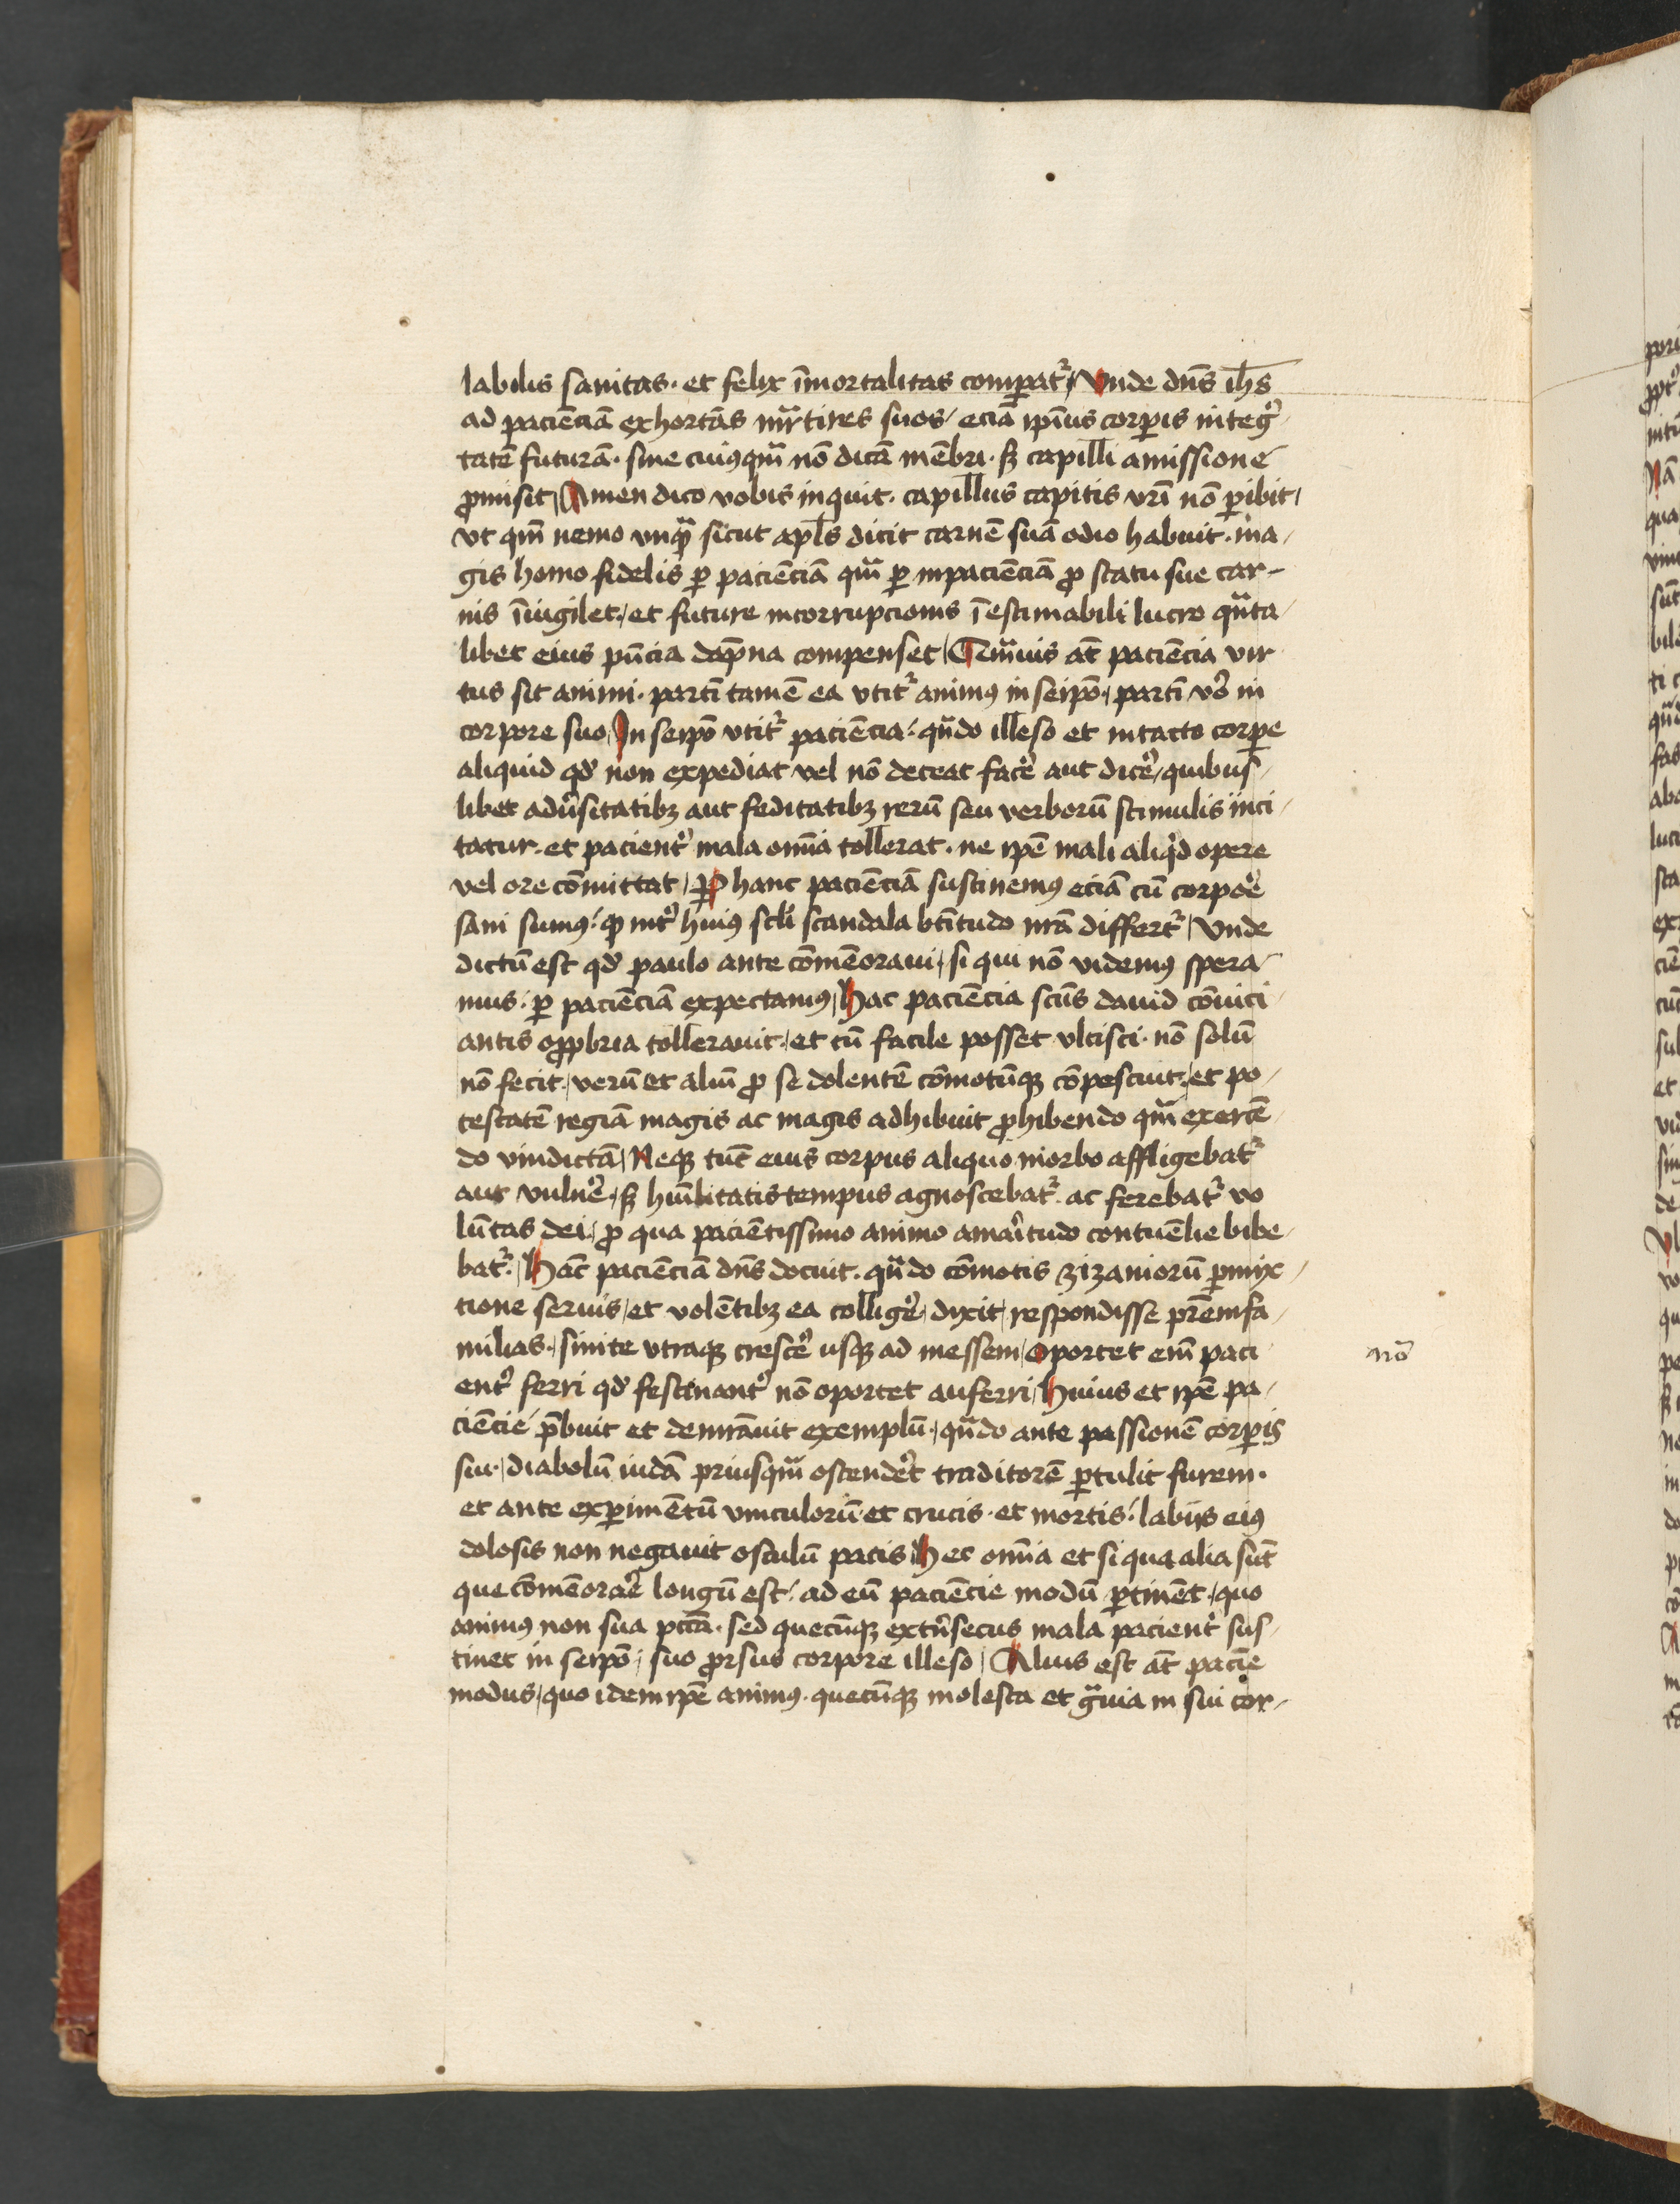 labilis sanitas· et felix īmortalitas compatͬ / Vnde dn̄s ih̄s
ad pacienciā exhortās mr̄tires suos / eciā ipīus corꝑis integͬ-
tatē futurā· sine cuiꝰqm̄ nō dicā mēbri· sꝫ capilli amissione
ꝓmisit / Amen dico vobis inquit· capillus capitis vr̄i nō ꝑibit /
vt qm̄ nemo vnqᷓ sicut apl̄s dicit carnē suā odio habuit· ma /
gis homo fidelis ꝑ pacienciā qm̄ ꝑ inpacienciā ꝓ statu sue car-
nis īuigilet / et future incorrupcionis īestimabili lucro qn̄ta /
libet eius pn̄cia dap̄na compenset / Qm̄uis at̄ paciēcia vir
tus sit animi· partī tamē ea vtitͬ animꝰ in seipō / partī vͦo in
corpore suo / In seipō vtitͬ paciēcia / qn̄do illeso et intacto corꝑe
aliquid qd̓ non expediat vel nō deceat facͤe aut dicͤe / quibus /
libet adūsitatibꝫ aut feditatibꝫ rerū seu verborū stimulis īnci /
tatur· et pacientͬ mala om̄ia tollerat· ne ipē mali aliqͥd opere
vel ore cōmittat / Per hanc pacienciā sustinemꝰ eciā cū corpoͤe
sani sumꝰ / ꝙ intͬ huiꝰ scl̄i scandala bt̄itudo nrā differtͬ / Vnde
dictū est qd̓ paulo ante cōmēoraui / si qui nō videmꝰ spera-
mus· ꝑ pacienciā expectamꝰ / Hac paciencia scūs dauid cōuici /
antis opꝓbria tollerauit / et cū facile posset vlcisci· nō solū
nō fecit / verū et aliū ꝓ se dolentē cōmotūqꝫ cōpescuit / et po /
testatē regiā magis ac magis adhibuit ꝓhibendo qm̄ exercē /
do vindictā / Neqꝫ tūc eius corpus aliquo morbo affligebatͬ
aut vulnͤe / sꝫ hūilitatis tempus agnoscebatͬ ac ferebatͬ vo
lūtas dei / ꝓ qua pacientissimo animo amaritudo contuēlie bibe-
batͬ / Hāc pacienciā dn̄s docuit· qn̄do cōmotis zizaniorū ꝑmix /
tione seruis / et volētibꝫ ea colligͤe / dixit / respondisse pr̄emfa /
milias / sinite vtraqꝫ crescͤe usqꝫ ad messem / Oportet em̄ paci
entͬ ferri qd̓ festinantͬ nō oportet auferri / Huius et ipē pa /
ciēcie p̄buit et demrāuit exemplū / qn̄do ante passionē corꝑis
sui / diabolū iudā priusqm̄ ostendͤet traditorē ꝑtulit furem·
et ante exꝑimētū vinculorū et crucis· et mortis / labijs eiꝰ
dolosis non negauit osculū pacis / Hec om̄ia et si qua alia sūt
que cōmēoraͤe longū est / ad eū paciēcie modū ꝑtinēt / quo
animꝰ non sua pcc̄a· sed quecūqꝫ extͥnsecus mala pacientͬ sus /
tinet in seipō / suo ꝓrsus corpore illeso / Alius est at̄ paciē̄
modus / quo idem ipē animꝰ· quecūqꝫ molesta et gᷓuia in sui cor-
nō